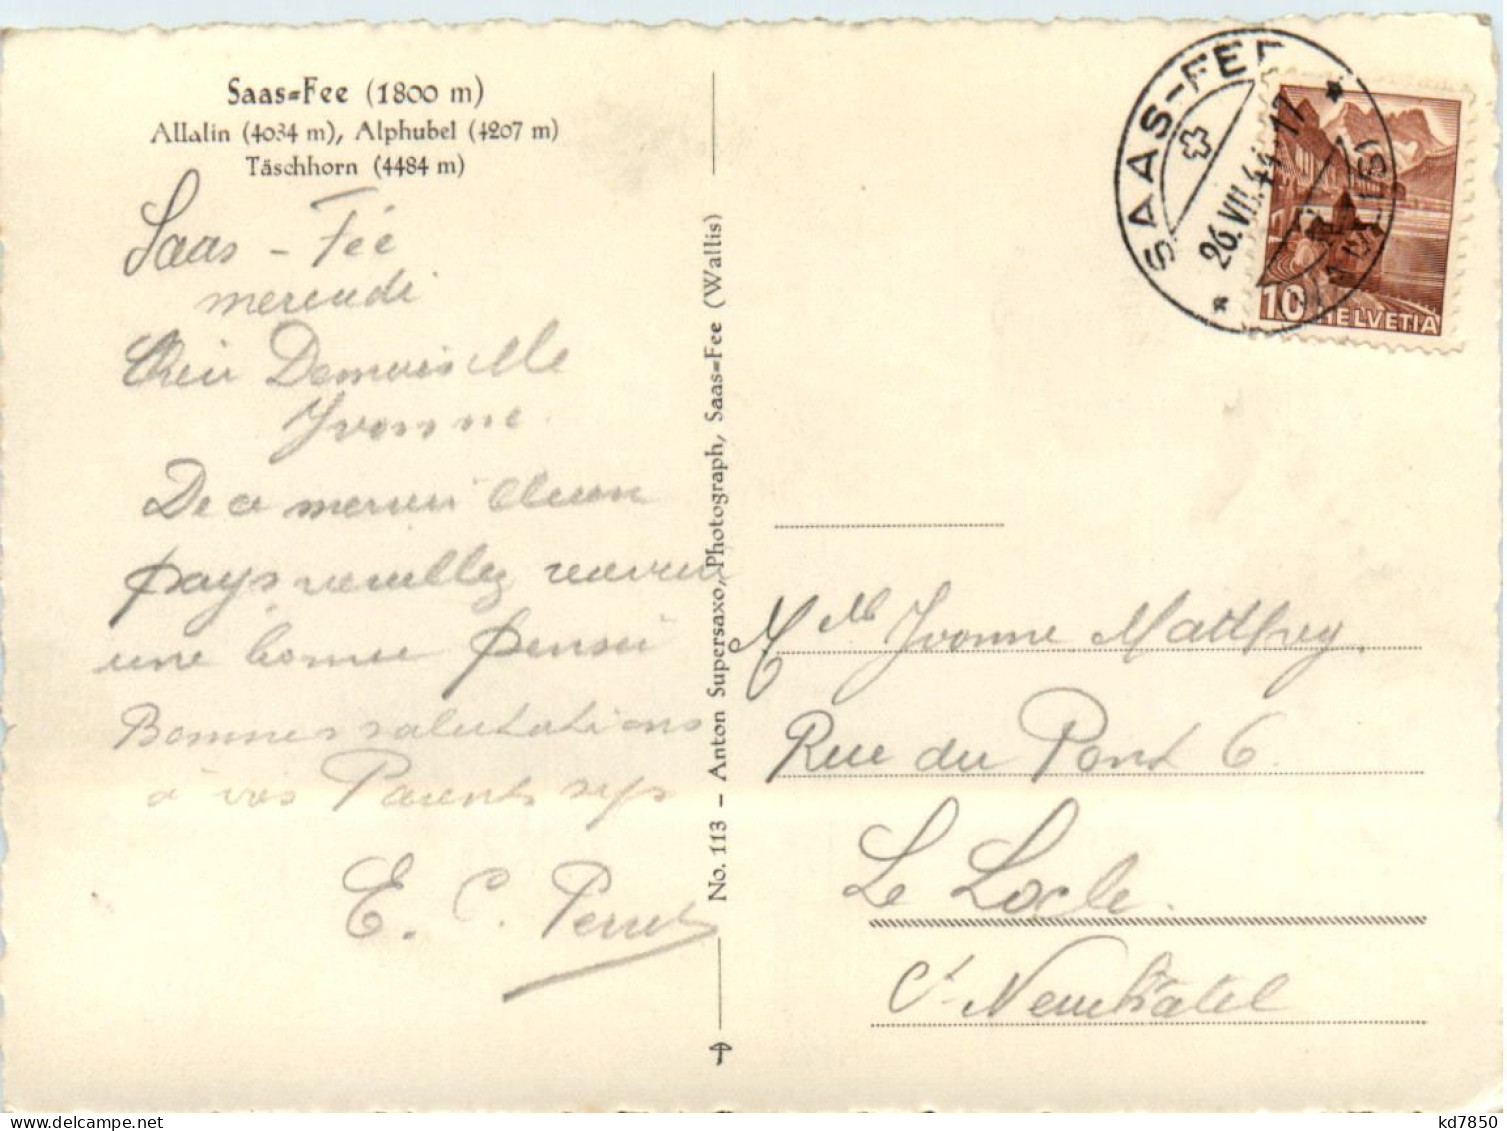 Saas-Fee (1800 m)
Allalin (4034 m), Alphubel (4207 m)
Täschhorn (4484 m)
Saas - Fée
mercredi
Demoiselle
Yvonne.
De ce
pays veuillez recevoir
une bonne pensée
Bonnes salutations
à vos Parents
E. C. Perret
No. 113 – Anton Supersaxo, Photograph, Saas-Fee (Wallis)
SAAS-FEE
26.VII.44-17
(WALLIS)
10 HELVETIA
Mlle Yvonne Matthey.
Rue du Pont 6.
Le Locle.
Ct. Neuchâtel
kd7850